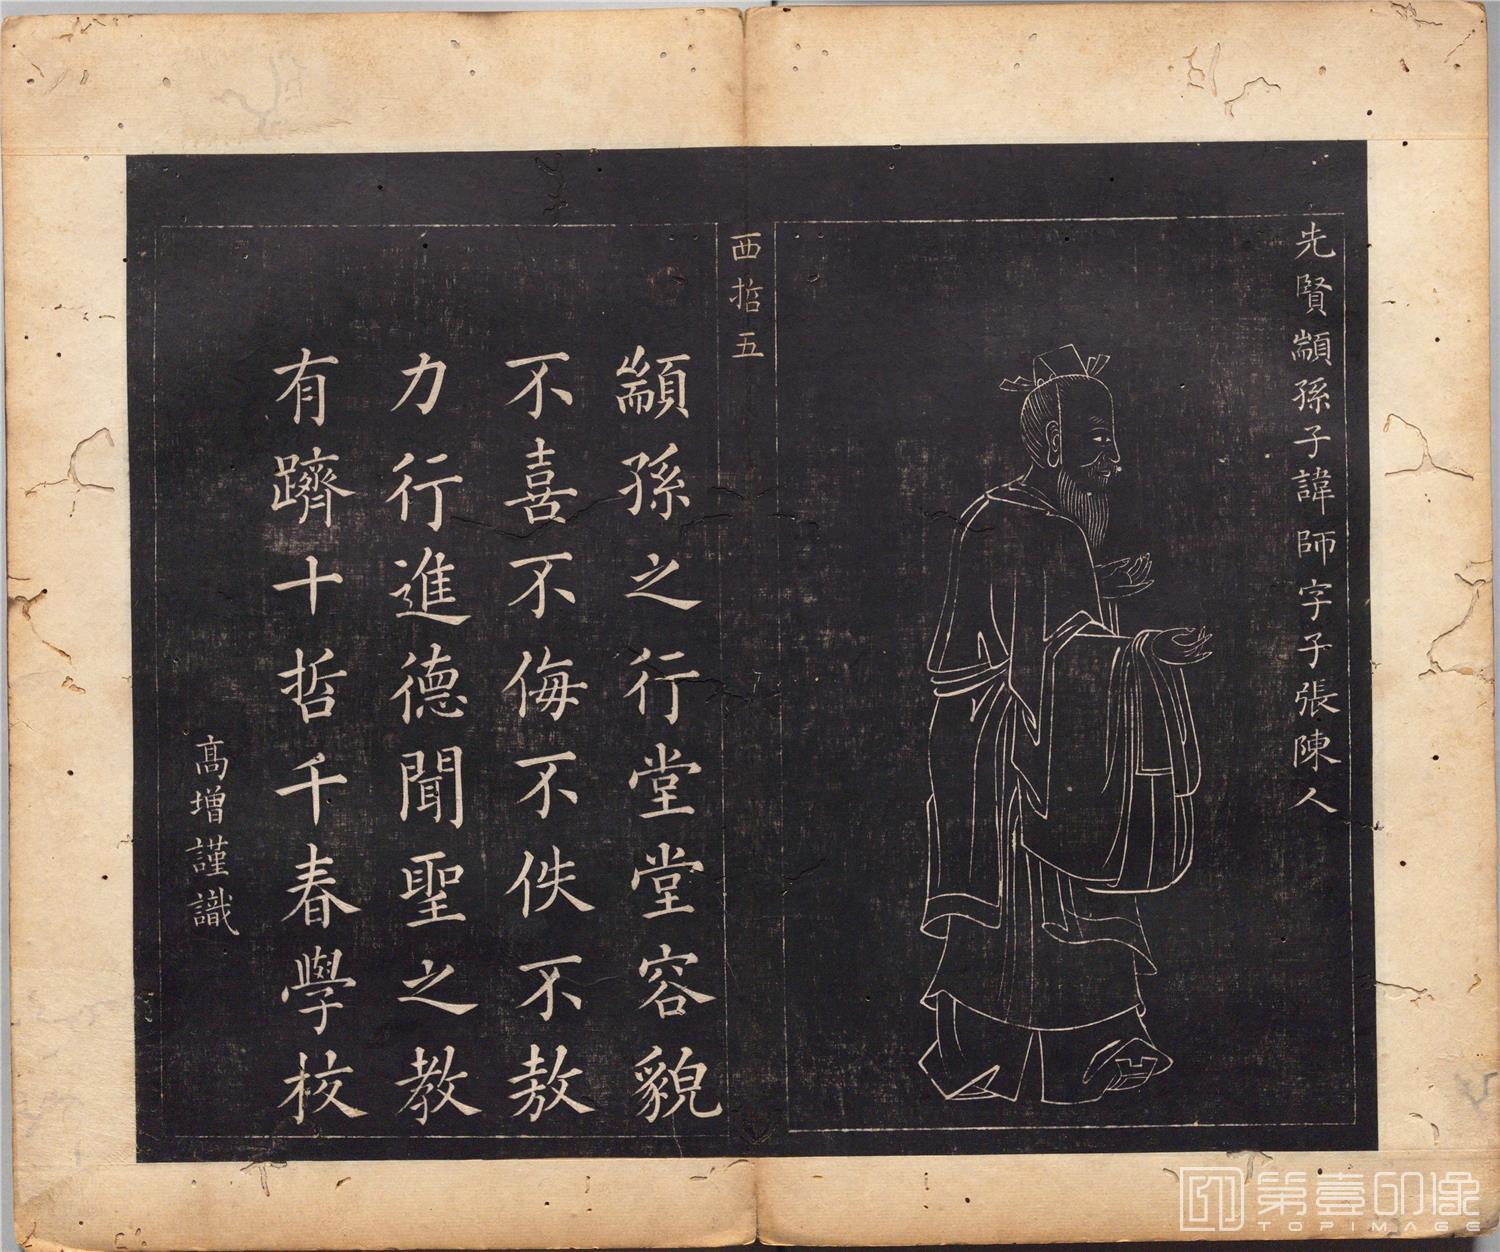 先賢顓孫子諱師字子張陳人
西哲五
顓孫之行堂堂容貌
不喜不侮不佚不敖
力行進德聞聖之教
有躋十哲千春學校
高增謹識
第壹印像
TOPIMAGE